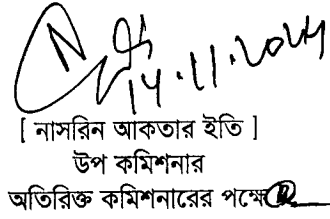 14.11.2024
[ নাসরিন আকতার ইতি ]
উপ কমিশনার
অতিরিক্ত কমিশনারের পক্ষে